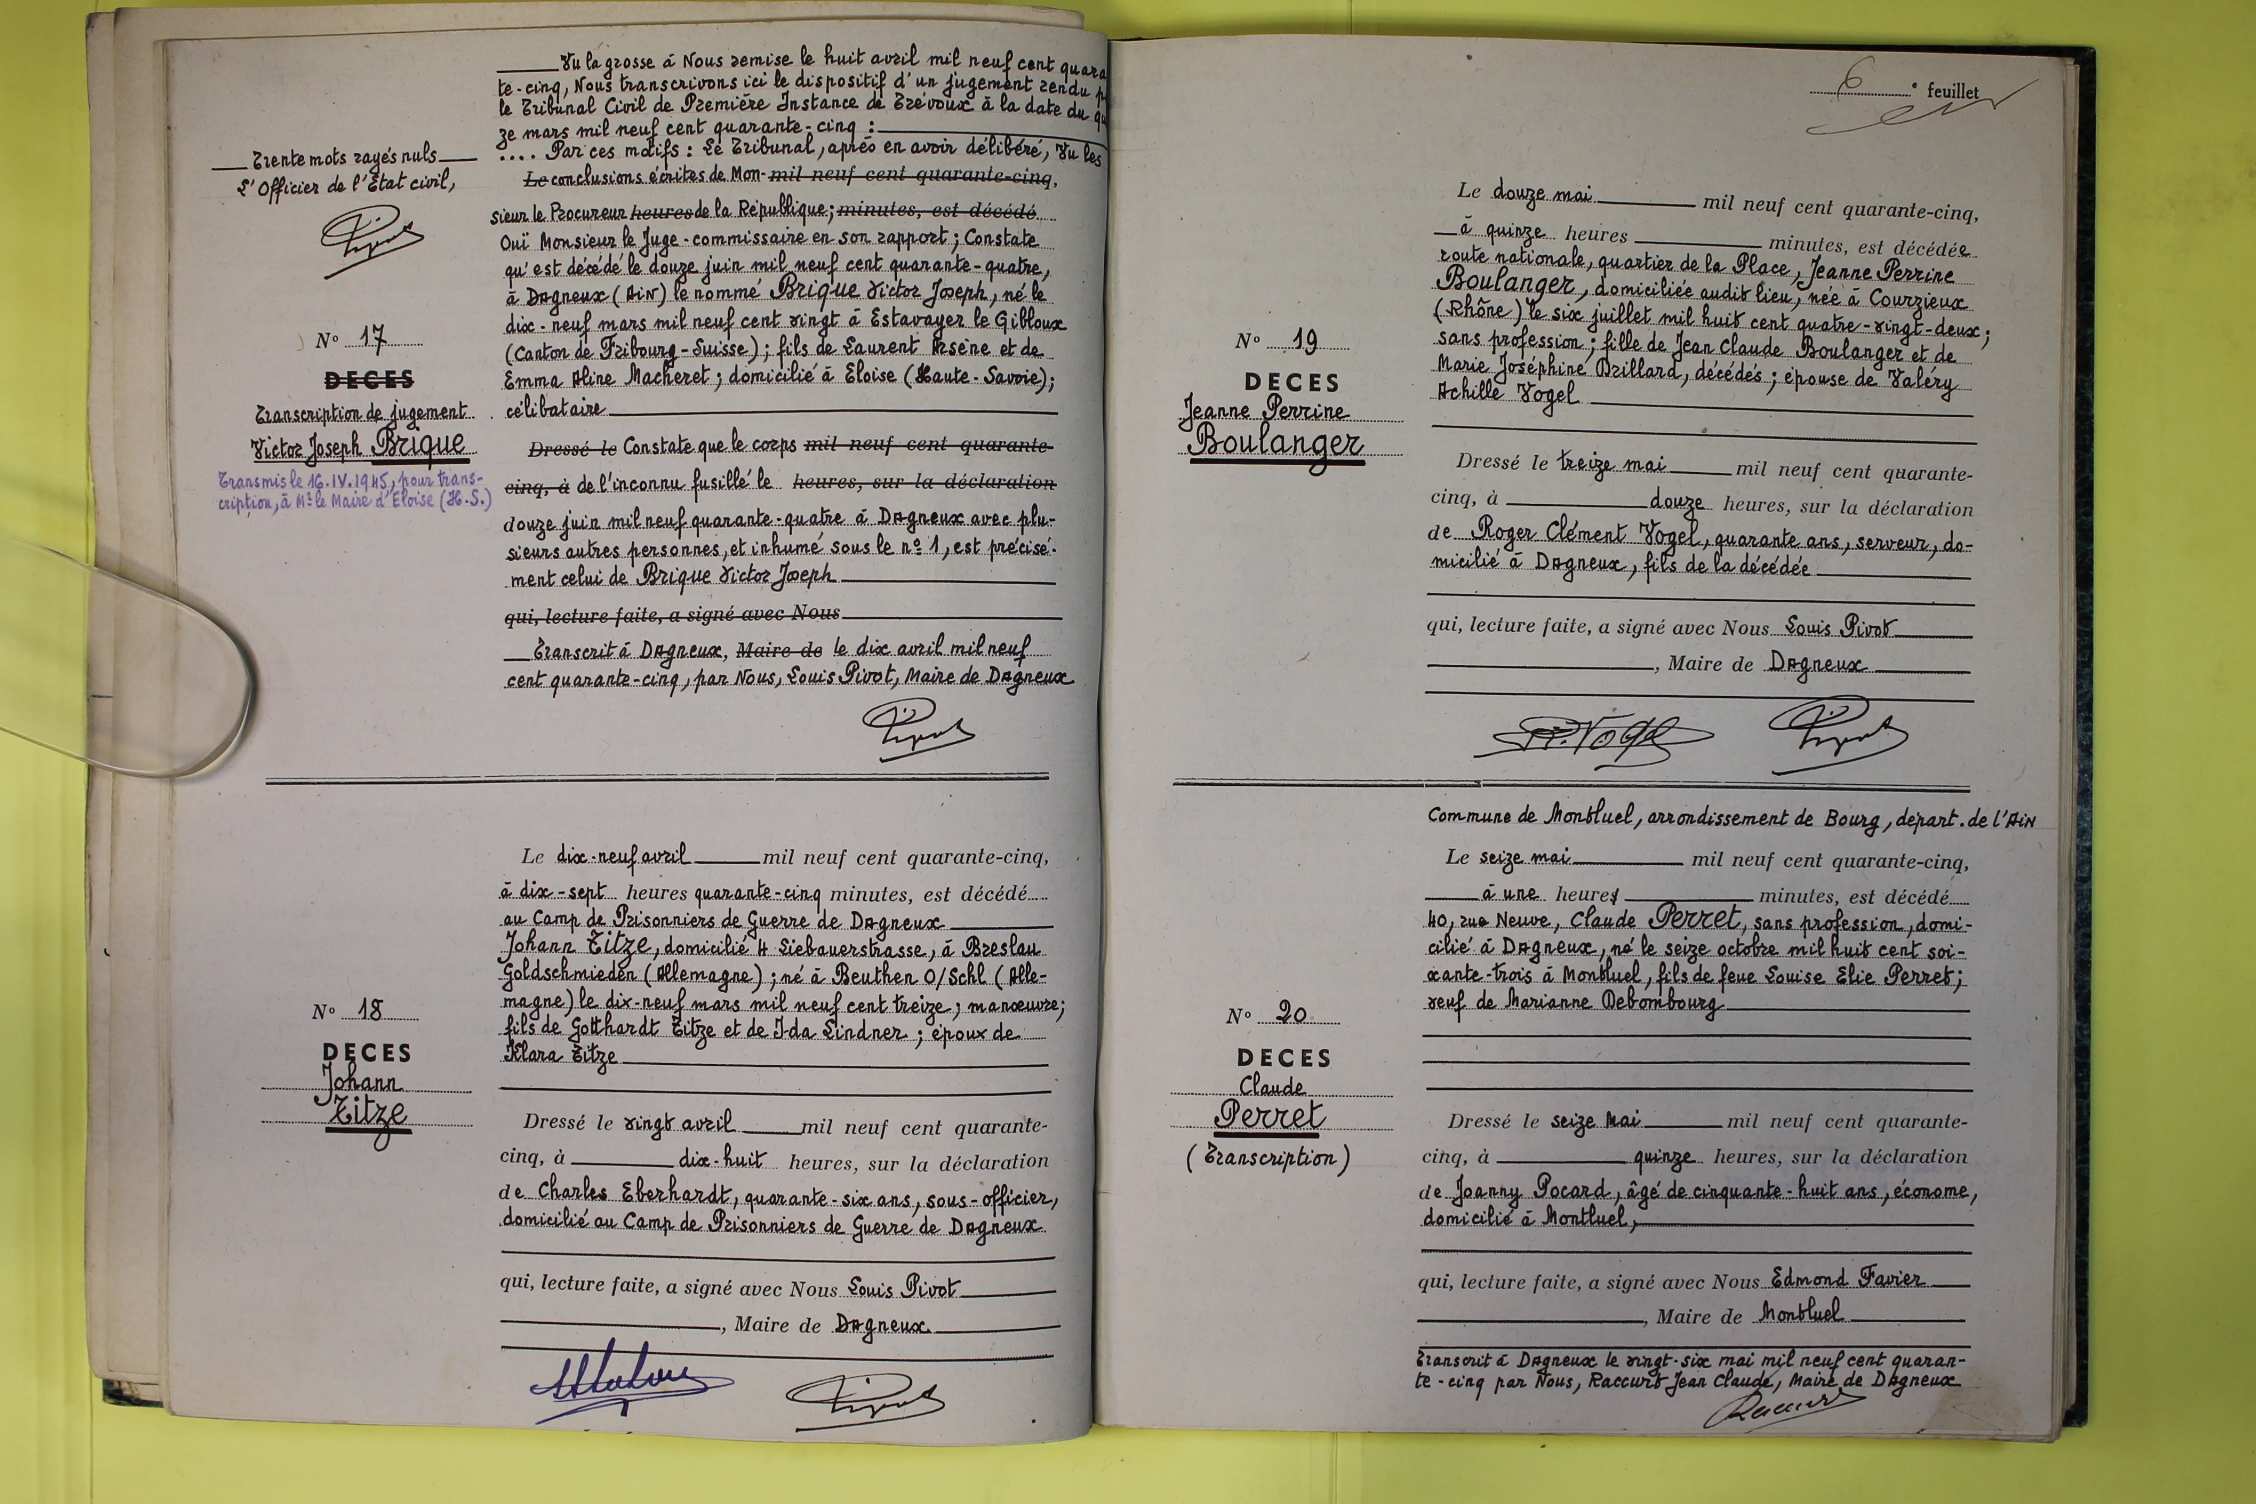 Vu la grosse à Nous remise le huit avril mil neuf cent quara
te-cinq, Nous transcrivons ici le dispositif d'un jugement rendu p
le Tribunal Civil de Première Instance de Trévoux à la date du qu
ze mars mil neuf cent quarante-cinq :
.... Par ces motifs : Le Tribunal, après en avoir délibéré, Vu les
Le conclusions écrites de Mon- mil neuf cent quarante-cinq,
sieur le Procureur heures de la République; minutes, est décédé
Ouï Monsieur le Juge-commissaire en son rapport ; Constate
qu'est décédé le douze juin mil neuf cent quarante-quatre,
à DAgneux (AiN) le nommé Brique Victor Joseph, né le
dix-neuf mars mil neuf cent vingt à Estavayer le Gibloux
(Canton de Fribourg-Suisse) ; fils de Laurent Arsène et de
Emma Aline Macheret ; domicilié à Eloise (Haute-Savoie);
célibataire
Dressé le Constate que le corps mil neuf cent quarante-
cinq, à de l'inconnu fusillé le heures, sur la déclaration
douze juin mil neuf quarante-quatre à DAgneux avec plu-
sieurs autres personnes, et inhumé sous le nº 1, est précisé-
ment celui de Brique Victor Joseph
qui, lecture faite, a signé avec Nous
Transcrit à DAgneux, Maire de le dix avril mil neuf
cent quarante-cinq, par Nous, Louis Pivot, Maire de DAgneux
Pivot
Trente mots rayés nuls
L'Officier de l'Etat civil,
Pivot
Nº 17
DECES
Transcription de jugement
Victor Joseph Brique
Transmis le 16.IV.1945, pour trans-
cription, à Mr le Maire d'Eloise (H.S.)
Nº 18
DECES
Johann
Titze
Le dix-neuf avril mil neuf cent quarante-cinq,
à dix-sept heures quarante-cinq minutes, est décédé
au Camp de Prisonniers de Guerre de DAgneux
Johann Titze, domicilié 4 Liebauerstrasse, à Breslau
Goldschmieden (Allemagne) ; né à Beuthen O/Schl (Alle-
magne) le dix-neuf mars mil neuf cent treize ; manœuvre;
fils de Gotthardt Titze et de Ida Lindner ; époux de
Klara Titze
Dressé le vingt avril mil neuf cent quarante-
cinq, à dix-huit heures, sur la déclaration
de Charles Eberhardt, quarante-six ans, sous-officier,
domicilié au Camp de Prisonniers de Guerre de DAgneux
qui, lecture faite, a signé avec Nous Louis Pivot
, Maire de DAgneux
Pivot
6e feuillet
Nº 19
DECES
Jeanne Perrine
Boulanger
Le douze mai mil neuf cent quarante-cinq,
à quinze heures minutes, est décédée
route nationale, quartier de la Place, Jeanne Perrine
Boulanger, domiciliée audit lieu, née à Courzieux
(Rhône) le six juillet mil huit cent quatre-vingt-deux;
sans profession ; fille de Jean Claude Boulanger et de
Marie Joséphine Brillard, décédés ; épouse de Valéry
Achille Vogel
Dressé le treize mai mil neuf cent quarante-
cinq, à douze heures, sur la déclaration
de Roger Clément Vogel, quarante ans, serveur, do-
micilié à DAgneux, fils de la décédée
qui, lecture faite, a signé avec Nous Louis Pivot
, Maire de DAgneux
R. Vogel Pivot
Nº 20
DECES
Claude
Perret
(Transcription)
Commune de Montluel, arrondissement de Bourg, départ. de l'AiN
Le seize mai mil neuf cent quarante-cinq,
à une heures minutes, est décédé
40, rue Neuve, Claude Perret, sans profession, domi-
cilié à DAgneux, né le seize octobre mil huit cent soi-
xante-trois à Montluel, fils de feue Louise Elie Perret;
veuf de Marianne Debombourg
Dressé le seize mai mil neuf cent quarante-
cinq, à quinze heures, sur la déclaration
de Joanny Pocard, âgé de cinquante-huit ans, économe,
domicilié à Montluel,
qui, lecture faite, a signé avec Nous Edmond Favier
, Maire de Montluel
Transcrit à DAgneux le vingt-six mai mil neuf cent quaran-
te-cinq par Nous, Raccurt Jean Claude, Maire de DAgneux
Raccurt